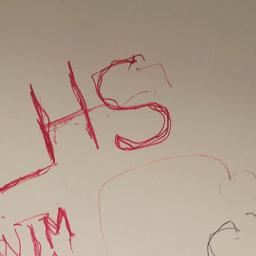 HS
WIM